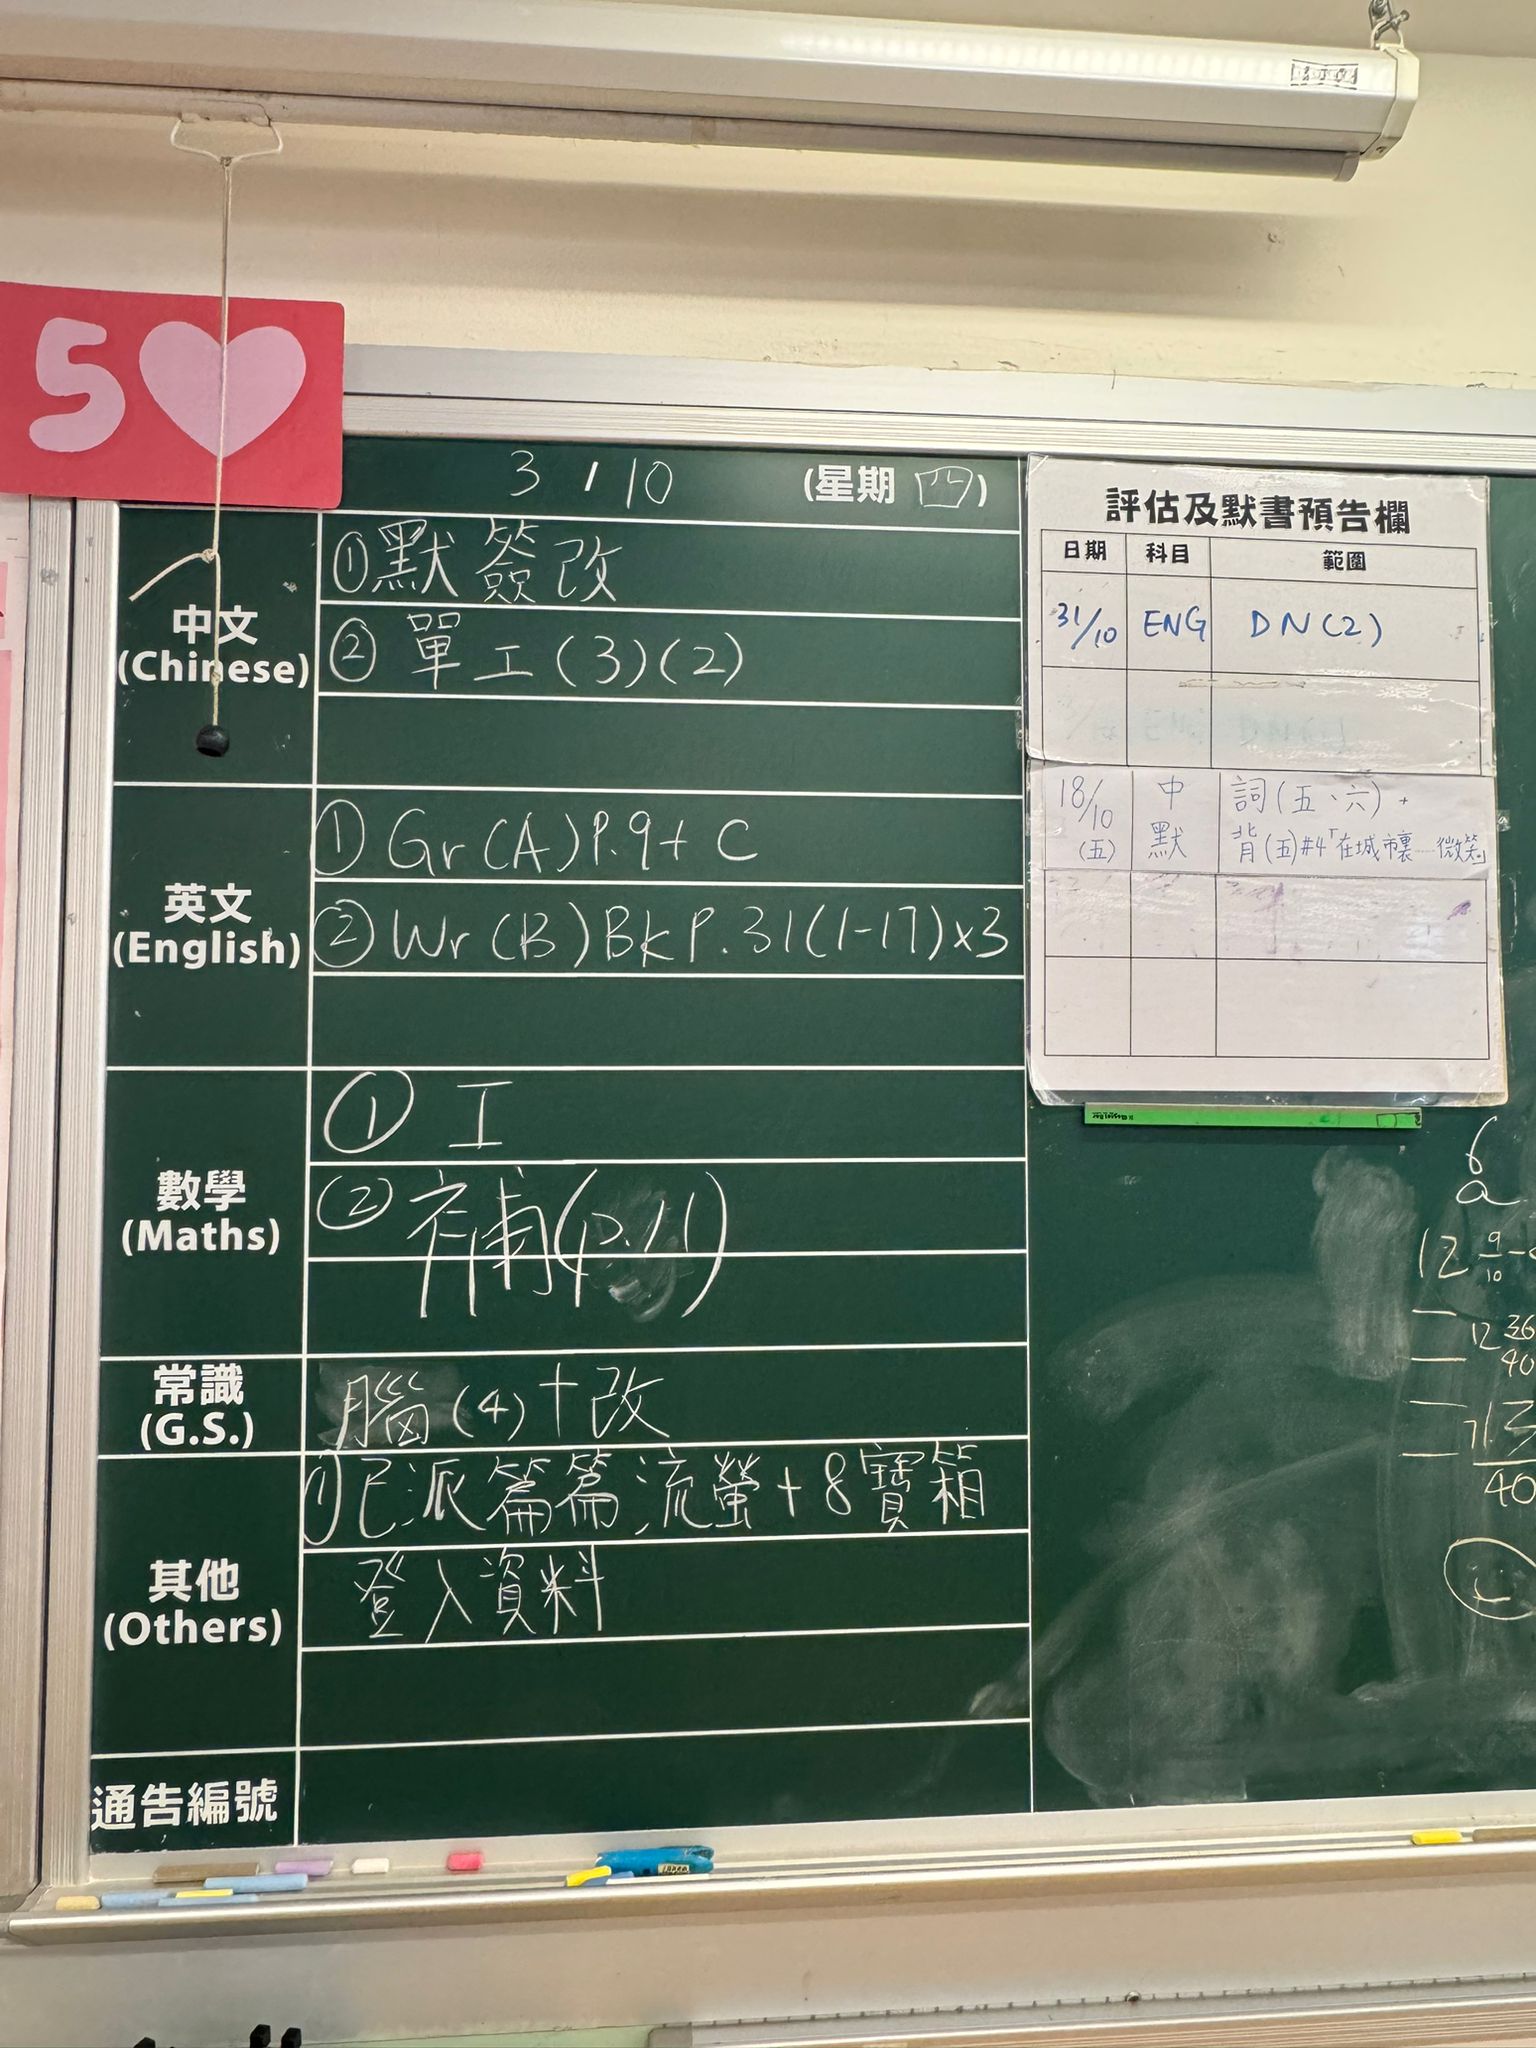 5
3 / 10 (星期 四)
中文
(Chinese)
①默簽改
② 單工(3)(2)
英文
(English)
① Gr(A)P.9+ C
② Wr(B)Bk P.31(1-17)×3
數學
(Maths)
① 工
② 補(p.11)
常識
(G.S.)
腦(4)+改
其他
(Others)
①已派篇篇流螢+8寶箱
登入資料
通告編號
評估及默書預告欄
日期 科目 範圍
31/10 ENG DN(2)
18/10 (五) 中默 詞(五、六)+
背(五)#4「在城市裏……微笑」
6
a
12 9/10
12 36/40
40